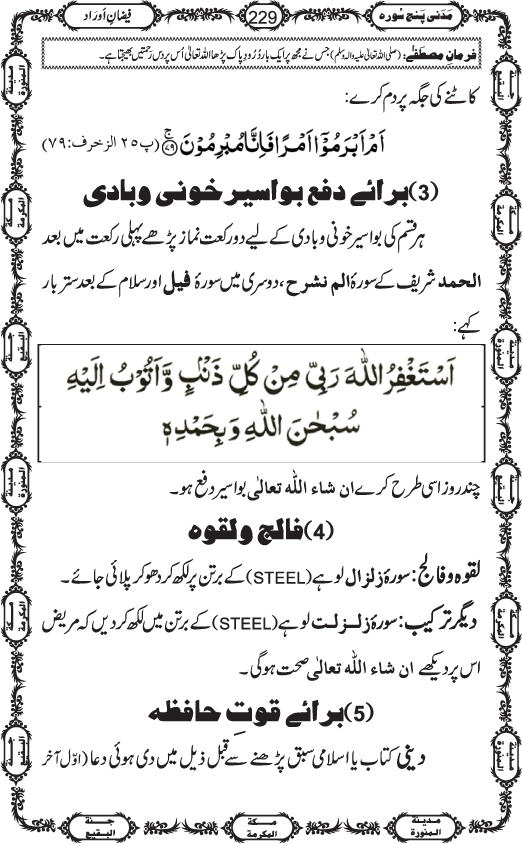 مَدَنی پنج سورہ
229
فیضانِ اَوراد
فرمانِ مصطفےٰ: (صلی اللہ تعالیٰ علیہ والہ وسلم) جس نے مجھ پر ایک بار دُرُودِ پاک پڑھا اللہ تعالیٰ اُس پر دس رحمتیں بھیجتا ہے۔
کاٹنے کی جگہ پر دم کرے:
اَمْ اَبْرَمُوْۤا اَمْرًا فَاِنَّا مُبْرِمُوْنَ ۚ﴿۷۹﴾ (پ۲۵ الزخرف:۷۹)
(3) برائے دفع بواسیر خونی وبادی
ہر قسم کی بواسیر خونی و بادی کے لیے دو رکعت نماز پڑھے پہلی رکعت میں بعد
الحمد شریف کے سورۂ الم نشرح، دوسری میں سورۂ فیل اور سلام کے بعد ستر بار
کہے:
اَسْتَغْفِرُ اللّٰہَ رَبِّیْ مِنْ کُلِّ ذَنْۢبٍ وَّاَتُوْبُ اِلَیْہِ
سُبْحٰنَ اللّٰہِ وَبِحَمْدِہٖ
چند روز اسی طرح کرے ان شاء اللہ تعالٰی بواسیر دفع ہو۔
(4) فالج ولقوہ
لقوہ و فالج: سورۂ زلزال لوہے (STEEL) کے برتن پر لکھ کر دھو کر پلائی جائے۔
دیگر ترکیب: سورۂ زلزلت لوہے (STEEL) کے برتن میں لکھ کر دیں کہ مریض
اس پر دیکھے ان شاء اللہ تعالٰی صحت ہوگی۔
(5) برائے قوتِ حافظہ
دینی کتاب یا اسلامی سبق پڑھنے سے قبل ذیل میں دی ہوئی دعا (اوّل آخر
مدینة المنورة
مکة المکرمة
جنة البقیع